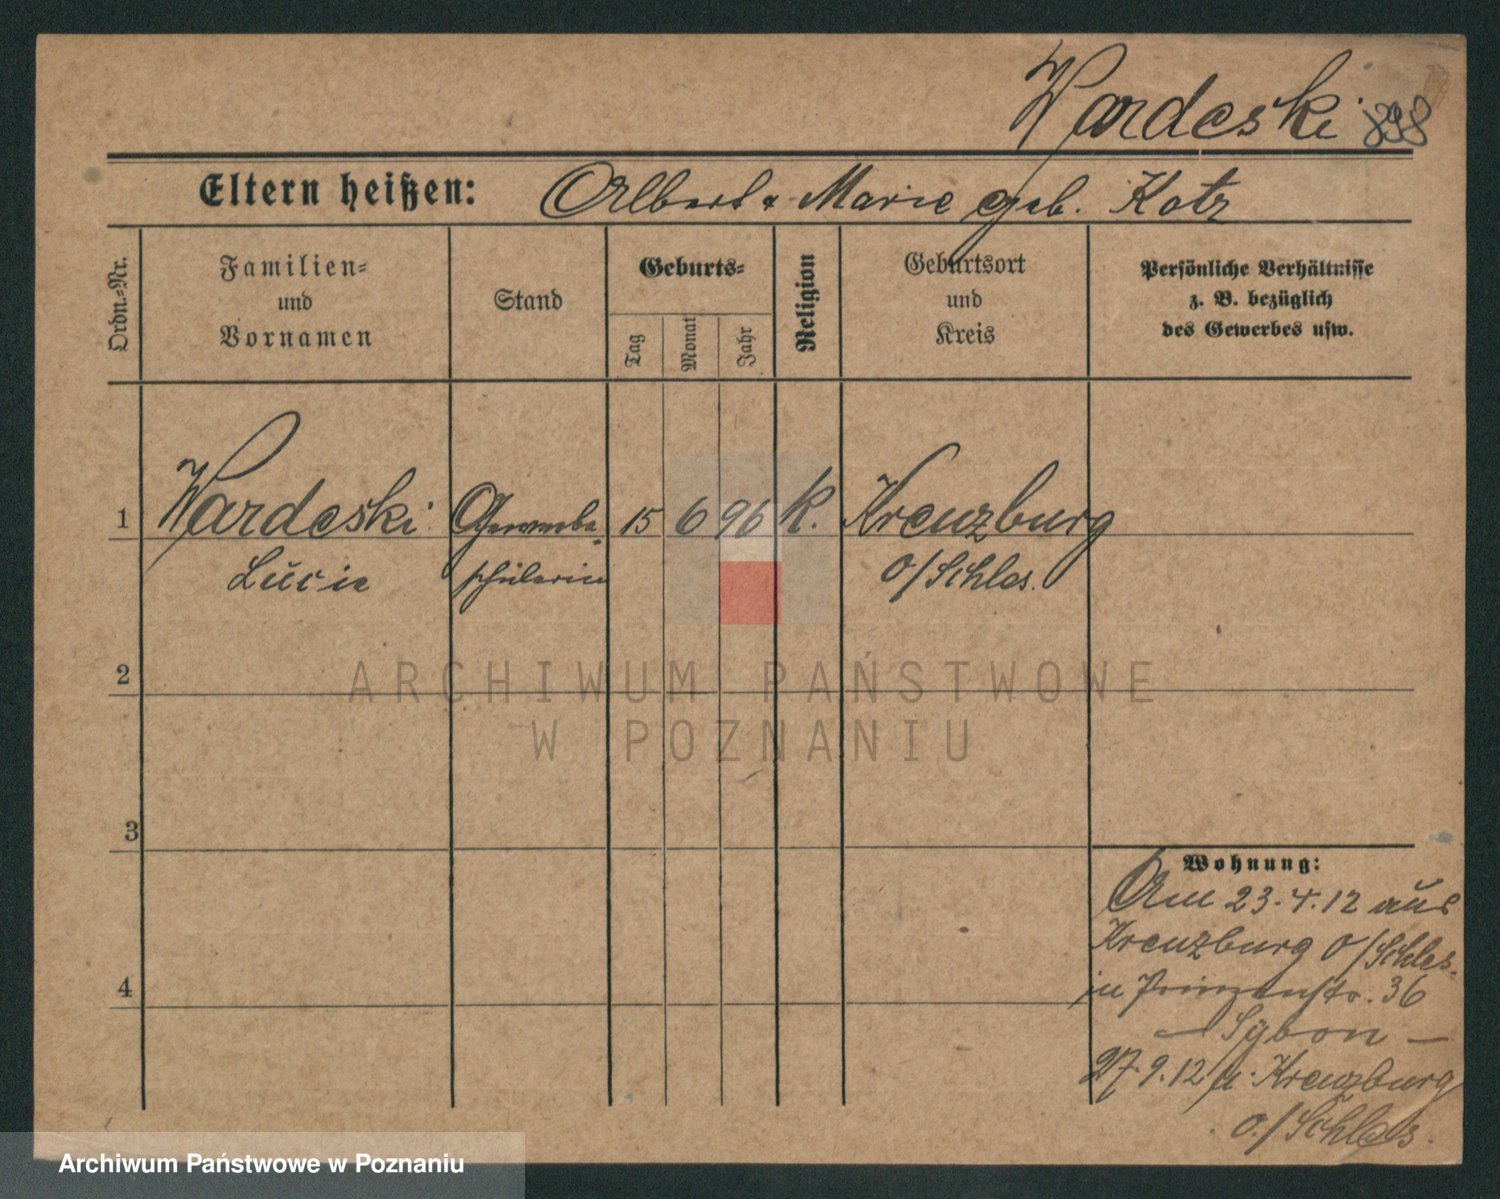 Wardeski 898
Eltern heißen: Albert & Marie geb. Kotz
Ordn.-Nr.
Familien-
und
Vornamen
Stand
Geburts-
Tag
Monat
Jahr
Religion
Geburtsort
und
Kreis
Persönliche Verhältnisse
z. B. bezüglich
des Gewerbes usw.
1 Wardeski Gewerbe- 15 6 96 k. Kreuzburg
Lucie schülerin O/Schles.
2
ARCHIWUM PAŃSTWOWE
W POZNANIU
3
Wohnung:
Am 23.4.12 aus
Kreuzburg O/Schles.
in Prinzenstr. 36
— Sybon —
27.9.12 n. Kreuzburg
O./Schles.
4
Archiwum Państwowe w Poznaniu